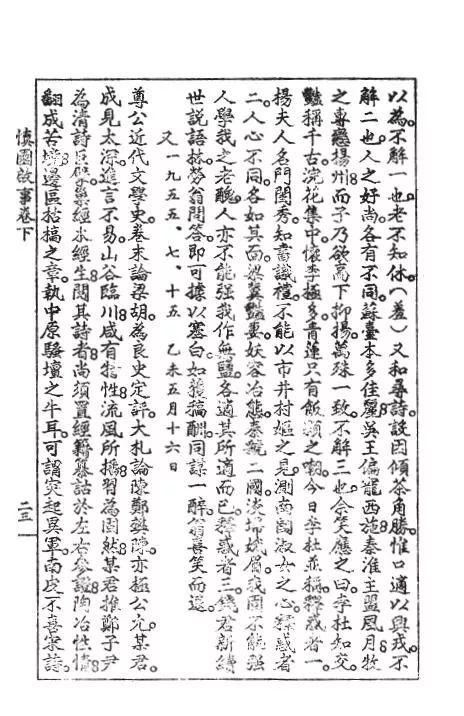 以為。不解一也。老不知休。(羞)又和尋詩談因傾茶角勝。惟口適以興戎。不
解二也。人之好尚。各有不同。蘇臺本多佳麗。吳王偏寵西施。秦淮主盟風月。牧
之專戀揚州。而子乃欲高下抑揚。萬殊一致。不解三也。余笑應之曰。李杜知交。
豔稱千古。浣花集中。懷李極多。青蓮只有飯顆之嘲。今日李杜並稱。釋惑者一。
揚夫人名門閨秀。知書識禮。不能以市井村嫗之見。測南國淑女之心。釋惑者
二。人心不同。各如其面。梁冀豔妻。妖容冶態。秦虢二國。淡掃蛾眉。我固不能強
人學我之老醜。人亦不能強我作無鹽。各適其所適而已。釋惑者三。錢君新續
世說語林。勞翁問答。即可據以塞白。如獲稿酬。同謀一醉。翁喜笑而還。
又 一九五五、七、十五 乙未五月十六日
尊公近代文學史。卷末論梁胡。為良史定評。大札論陳鄭。陳亦極公允。某君
成見太深。進言不易。山谷臨川。咸有特性。流風所播。習為固然。某君推鄭子尹
為清詩巨擘。巢經水經。生閱其詩者。尚須置經籍纂詁於左右。參證陶冶性情。
翻成苦境。邊區枯槁之章。執中原騷壇之牛耳。可謂突起異軍。南皮不喜宋詩。
慎園啟事卷下
二三